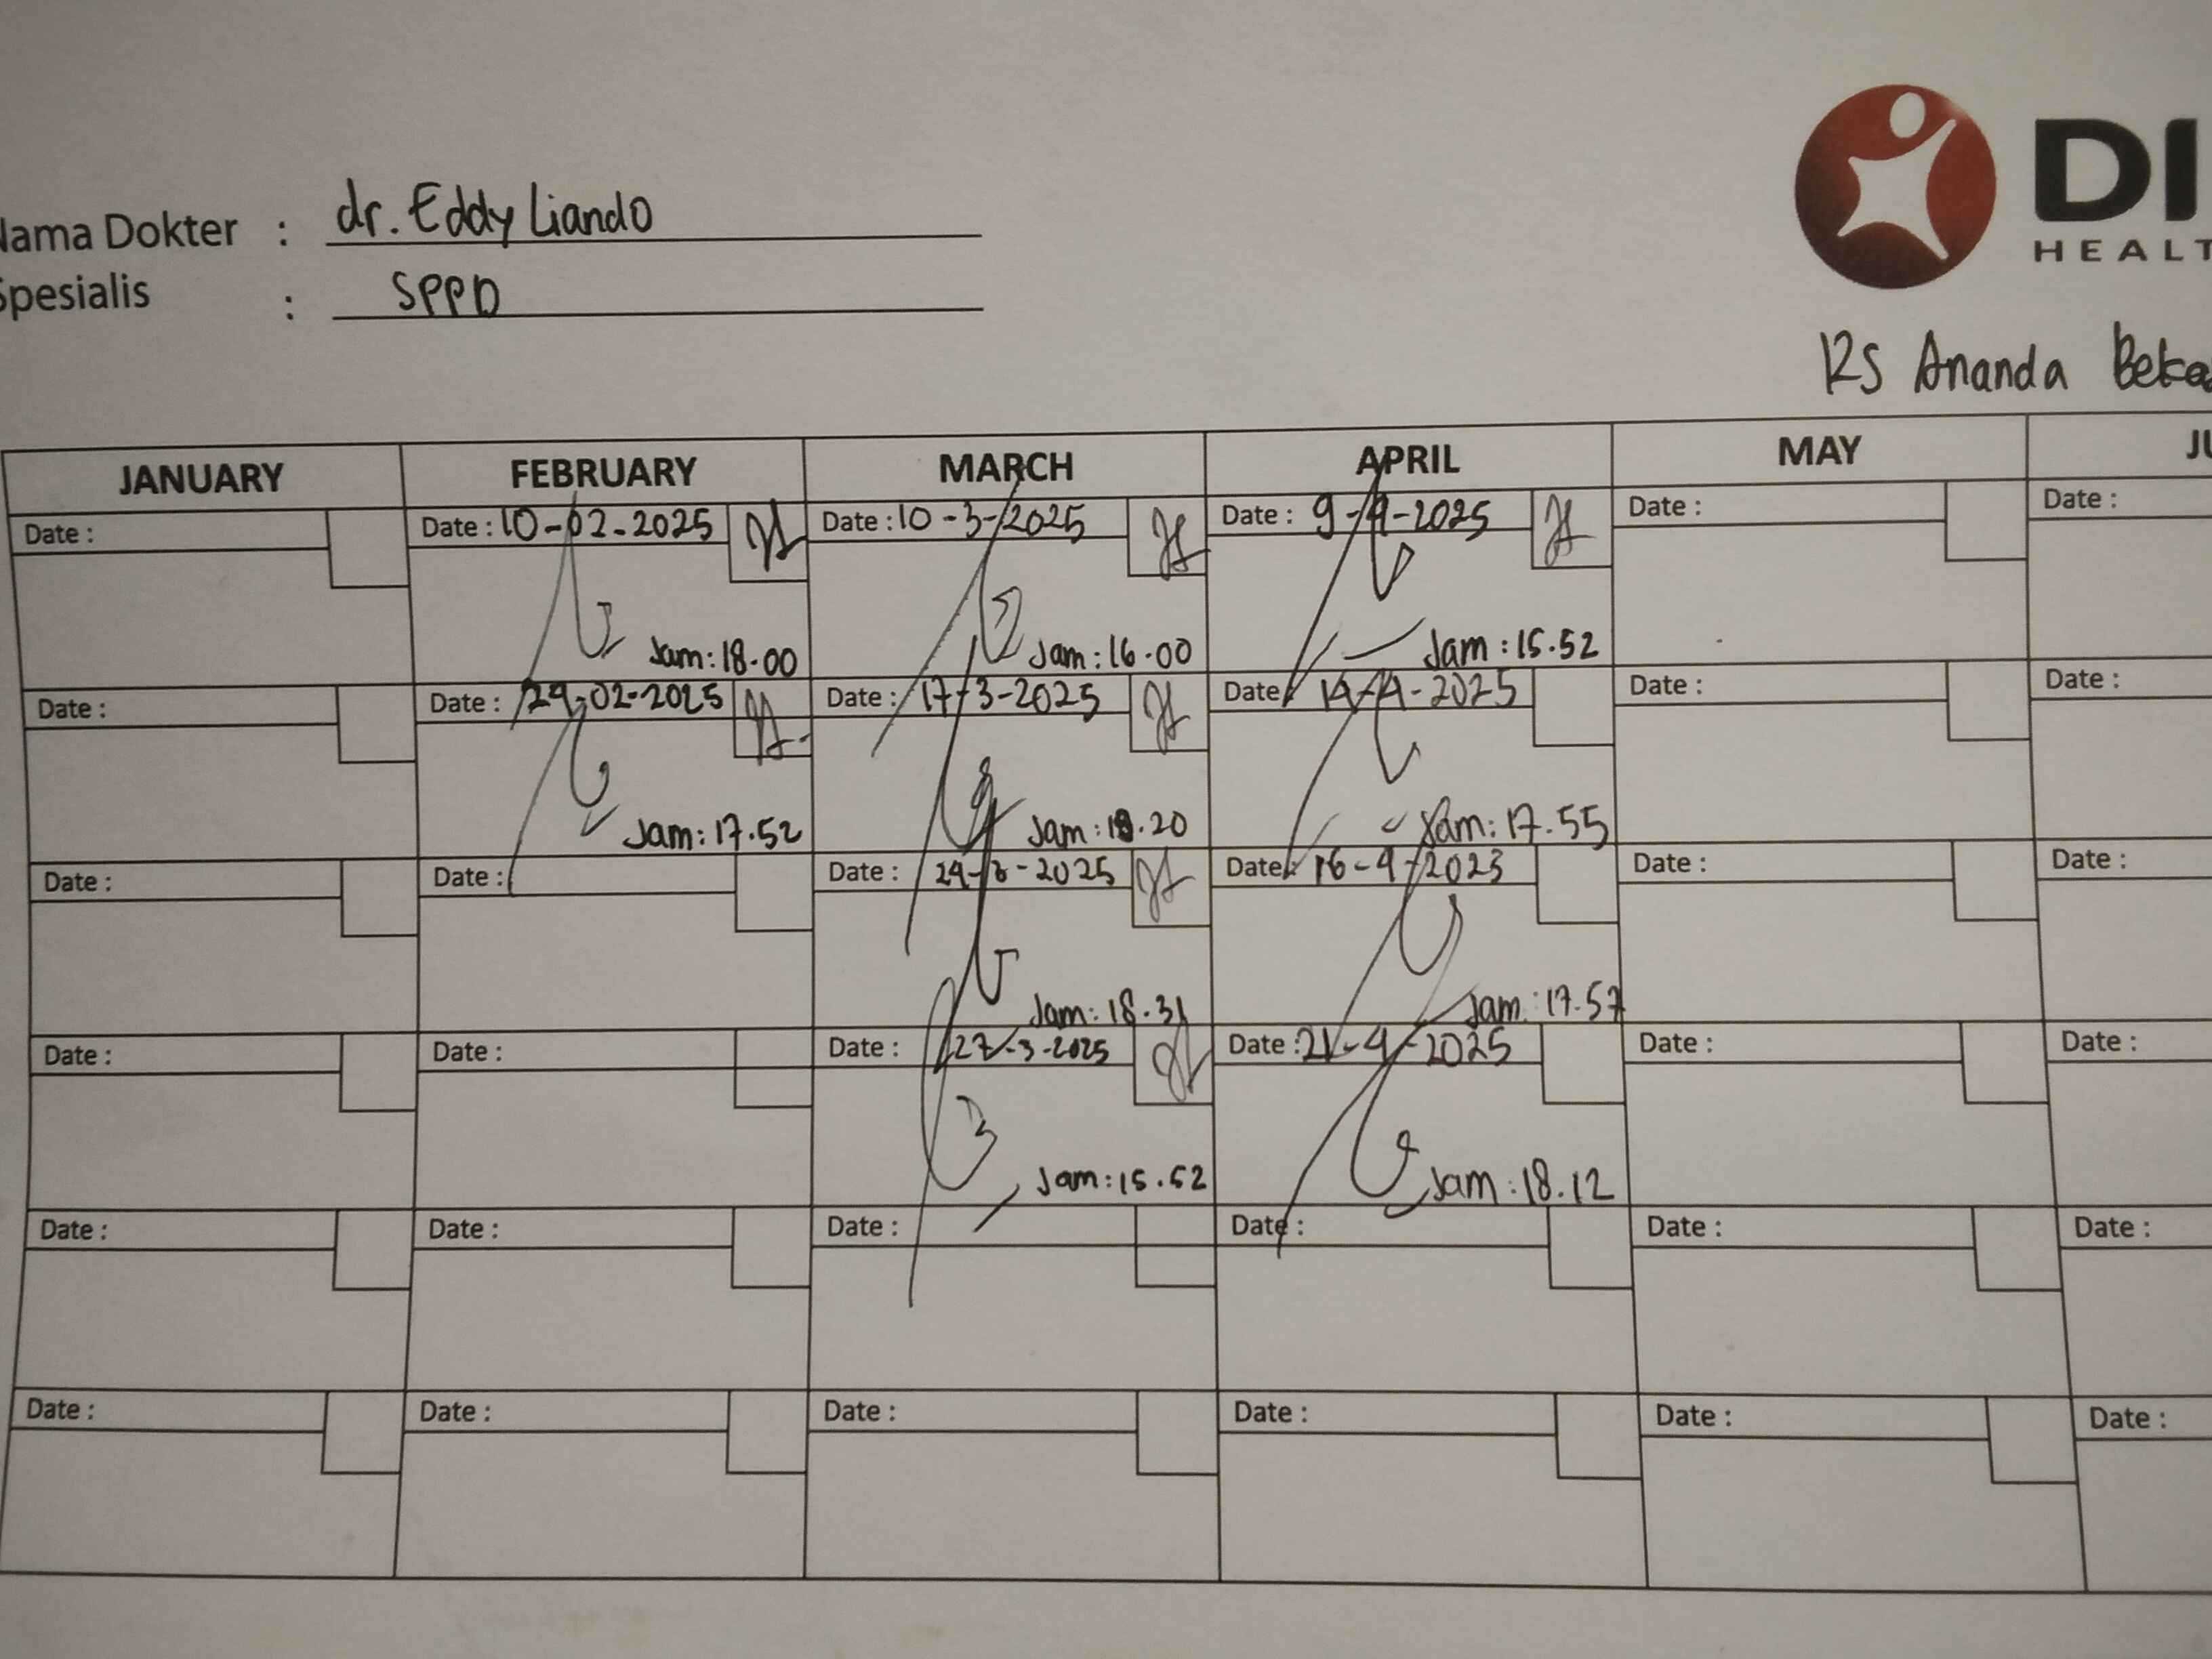 DI
HEALT
Nama Dokter : dr. Eddy Liando
Spesialis : SPPD
RS Ananda
JANUARY FEBRUARY MARCH APRIL MAY JU
Date : Date : 10-02-2025 Date : 10-3-2025 Date : 9-4-2025 Date : Date :
Jam : 18.00 Jam : 16.00 Jam : 15.52
Date : Date : 24-02-2025 Date : 17-3-2025 Date : 14-4-2025 Date : Date :
Jam : 17.52 Jam : 18.20 Jam : 17.55
Date : Date : Date : 24-3-2025 Date : 16-4-2025 Date : Date :
Jam : 18.31 Jam : 17.57
Date : Date : Date : 27-3-2025 Date : 21-4-2025 Date : Date :
Jam : 15.52 Jam : 18.12
Date : Date : Date : Date : Date : Date :
Date : Date : Date : Date : Date : Date :